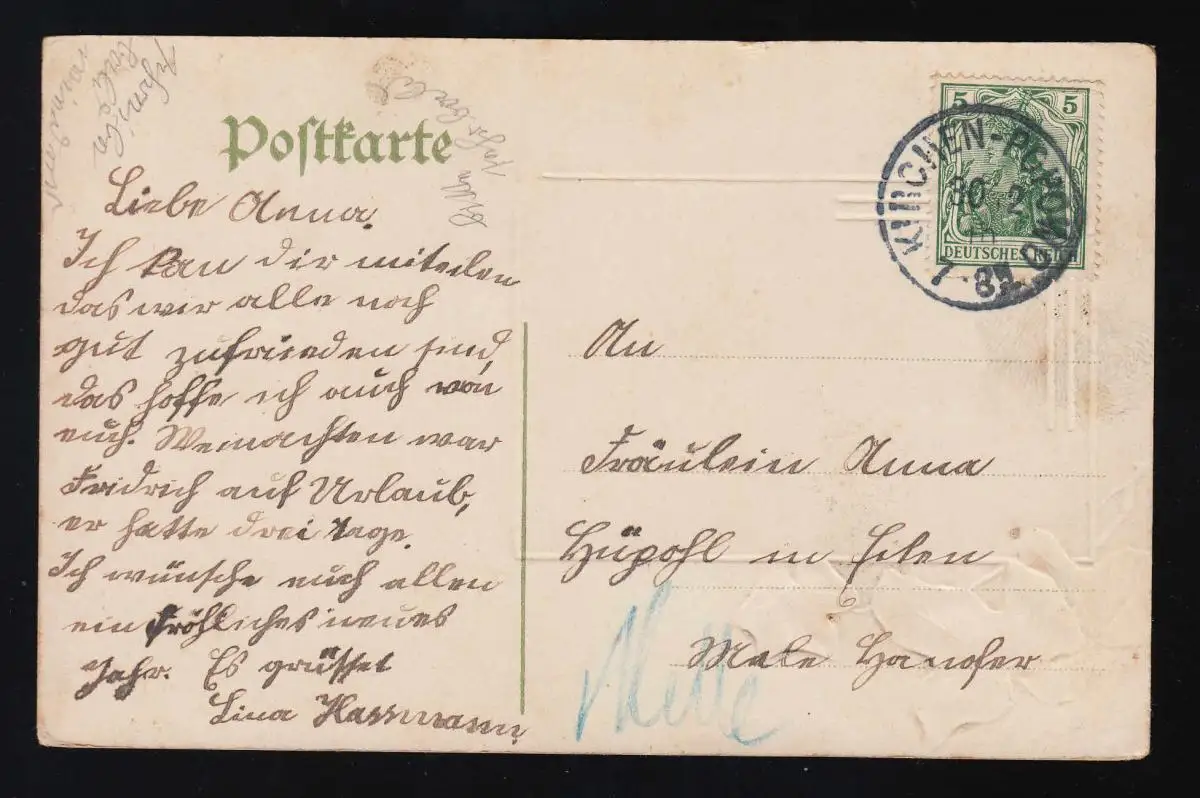 Postkarte
Liebe Anna.
Ich kan dir miteilen
das wir alle noch
gut zufrieden sind,
das hoffe ich auch von
euch. Weinachten war
Fridrich auf Urlaub,
er hatte drei tage.
Ich wünsche euch allen
ein fröhliches neues
Jahr. Es grüsset
Lina Hassmann
5 5
DEUTSCHES REICH
7-8N
An
Fräulein Anna
Hüpohl in Eilen
Mele Hanofer
Melle